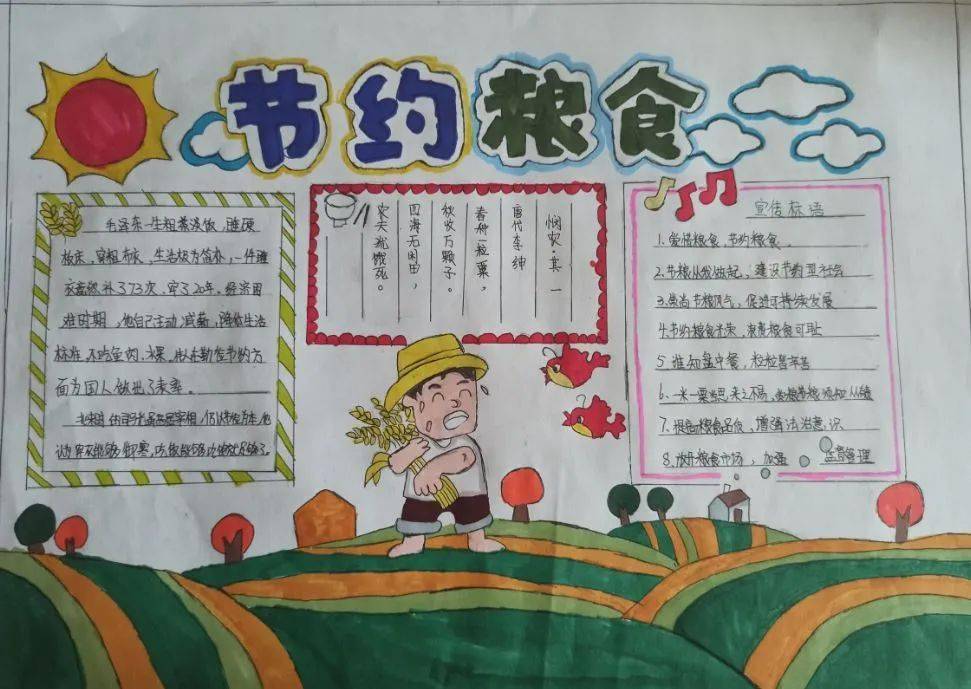 节约粮食
毛泽东一生粗茶淡饭，睡硬
板床，穿粗布衣，生活极为简朴，一件睡
衣竟然补了73次，穿了20年。经济困
难时期，他自己主动减薪，降低生活
标准，不吃鱼肉、水果。
面为国人做出了表率。
悯农·其一
唐代李绅
春种一粒粟，
秋收万颗子。
四海无闲田，
农夫犹饿死。
宣传标语
1.爱惜粮食，节约粮食。
2.节粮从我做起，建设节约型社会
3.崇尚节粮风气，促进可持续发展
4.节约粮食光荣，浪费粮食可耻
5.谁知盘中餐，粒粒皆辛苦
6.一米一粟当思来之不易
7.提高粮食品质，增强法治意识
8.放开粮食市场，加强 监督管理